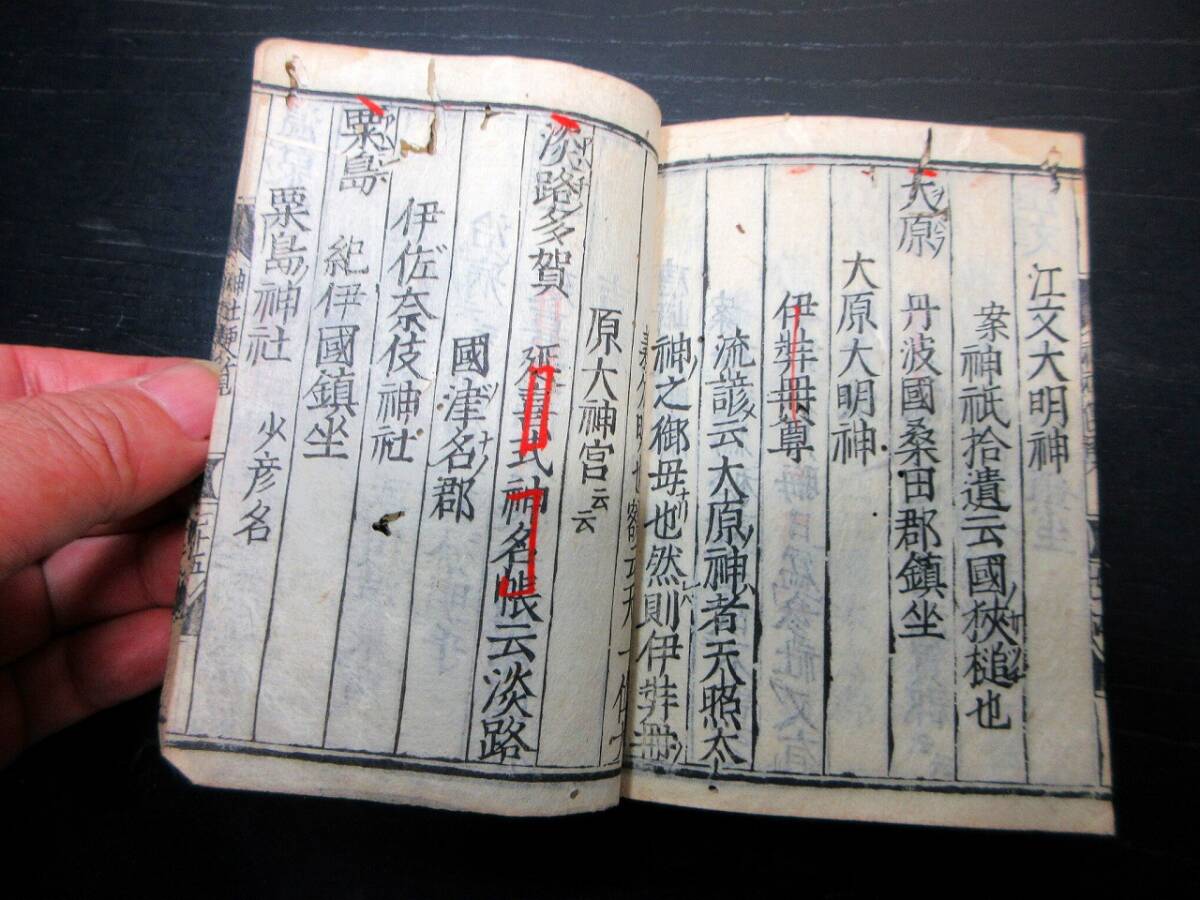 江文大明神
案神祇拾遺云國狹槌也
大原 丹波國桑田郡鎮坐
大原大明神
伊弉冊尊
流諺云大原神者天照太
神之御母也然則伊弉冊
原大神宮云云
淡路多賀 延喜式神名帳云淡路
國津名郡
伊佐奈伎神社
粟島 紀伊國鎮坐
粟島神社 少彦名